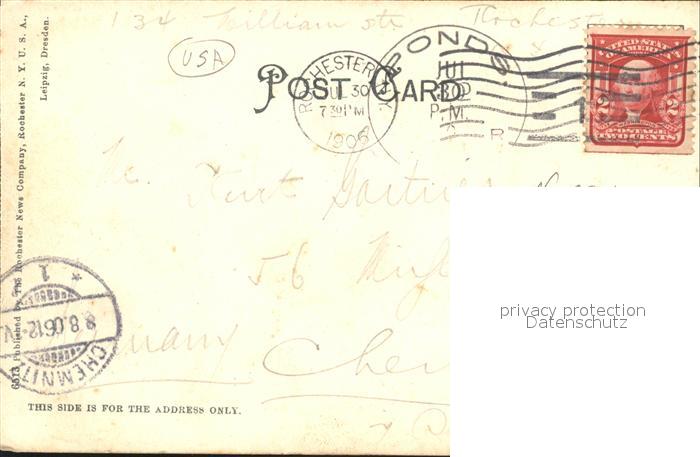 134 William str Rochester
USA
POST CARD
ROCHESTER, N.Y.
JUL 30
7 30 PM
1906
PONDS.
JUL
30
P.M.
R
UNITED STATES OF AMERICA
2 2
POSTAGE
TWO CENTS
6513 Published by The Rochester News Company, Rochester N. Y. U. S. A.,
Leipzig, Dresden.
Kurt
56
Germany Che
CHEMNITZ
8.8.06.12
1
privacy protection
Datenschutz
THIS SIDE IS FOR THE ADDRESS ONLY.